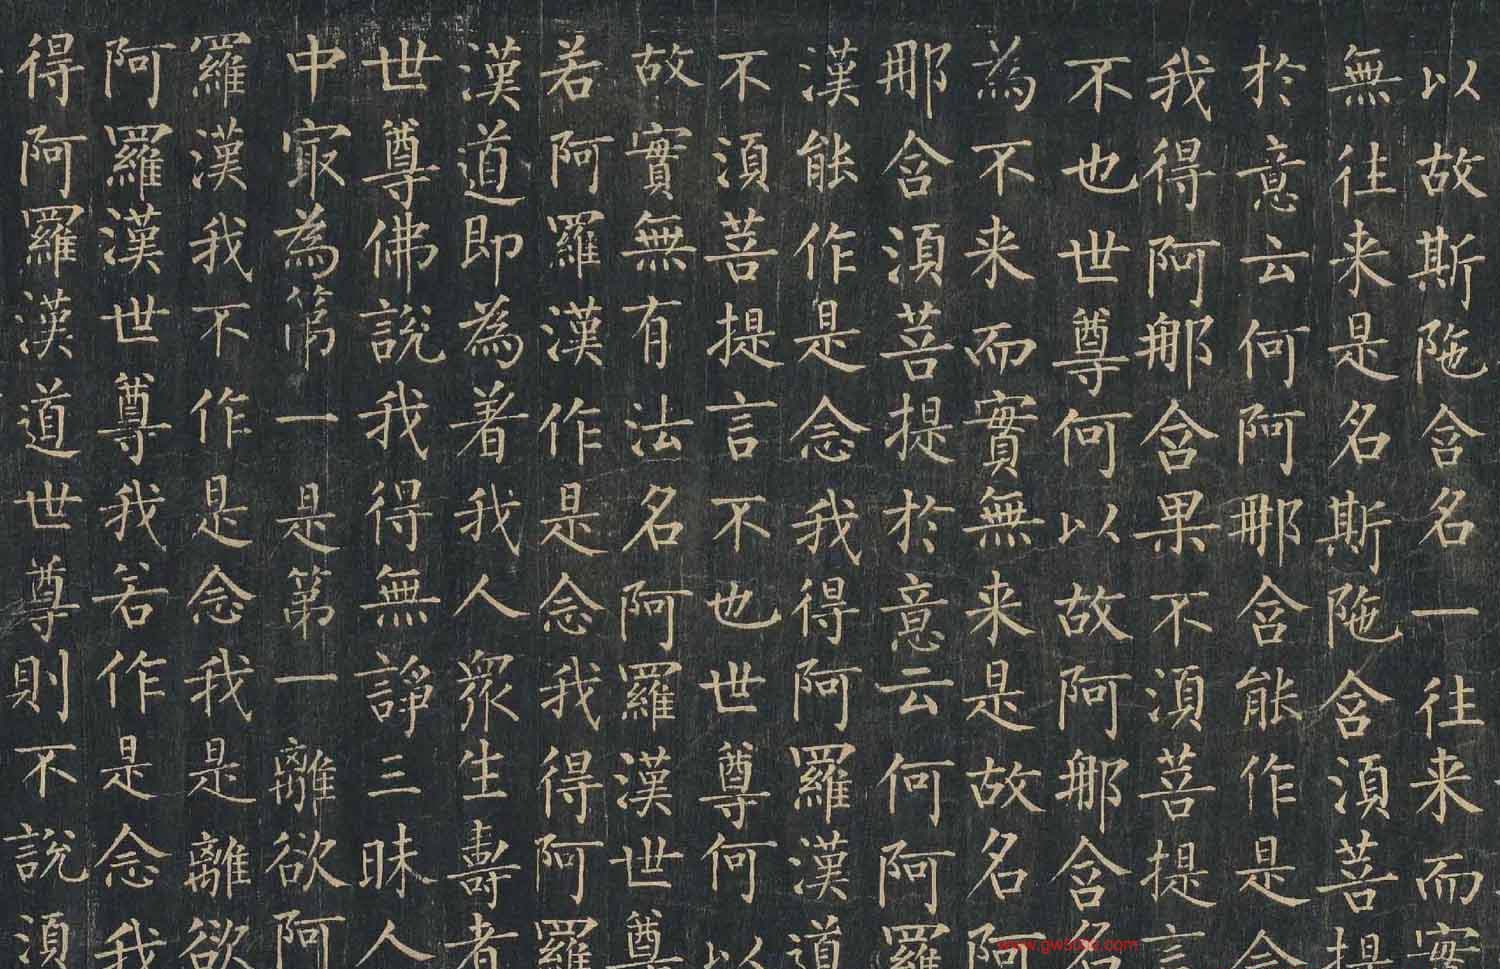 以故斯陁含名一往来而實
無往来是名斯陁含湏菩提
於意云何阿那含能作是念
我得阿那含果不湏菩提言
不也世尊何以故阿那含名
為不来而實無来是故名阿
那含湏菩提於意云何阿羅
漢能作是念我得阿羅漢道
不湏菩提言不也世尊何以
故實無有法名阿羅漢世尊
若阿羅漢作是念我得阿羅
漢道即為着我人眾生壽者
世尊佛說我得無諍三昧人
中冣為第一是第一離欲阿
羅漢我不作是念我是離欲
阿羅漢世尊我若作是念我
得阿羅漢道世尊則不說湏